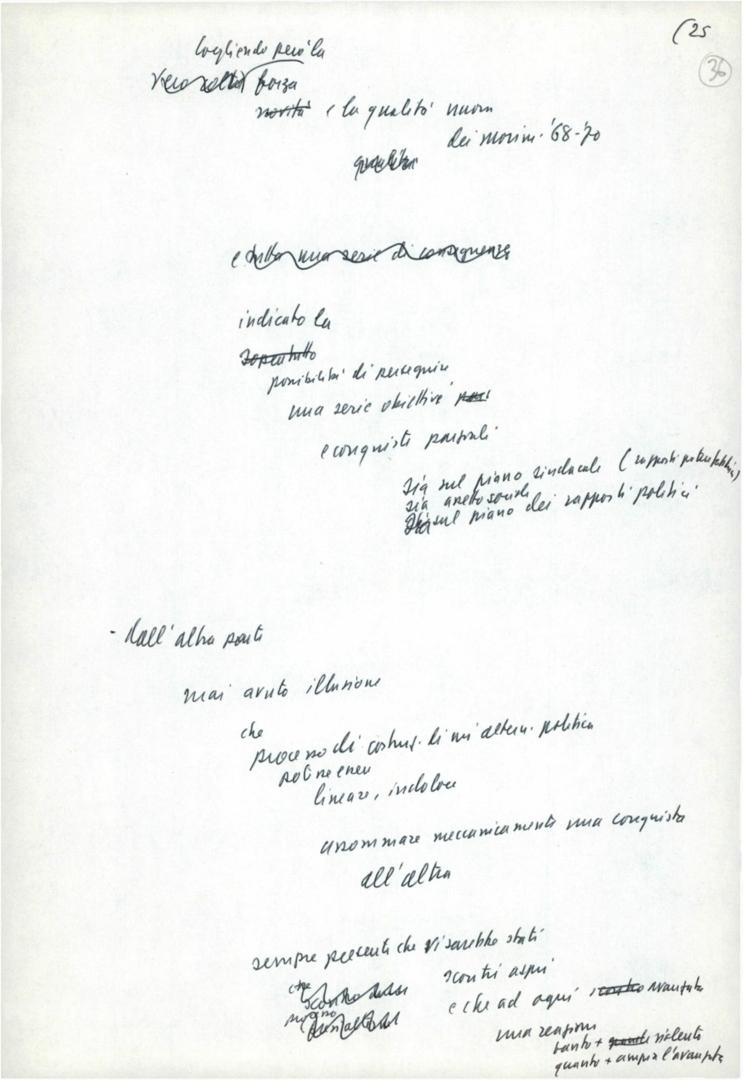 (25
36
cogliendo però la
vera
forza
novità e la qualità nuova
dei movim. '68-'70
qualità
e tutta una serie di conseguenze
indicato la
soprattutto
possibilità di perseguire
una serie obiettivi
e conquiste parziali
sia sul piano sindacale (rapporti
sia
sul piano dei rapporti politici
- dall'altra parte
mai avuto illusione
che
processo di costruz. di un'altern. politica
potesse
lineare, indolore
assommare meccanicamente una conquista
all'altra
sempre presenti che vi sarebbero stati
scontri aspri
che
e che ad ogni avanzata
una reazione
tanto + violenta
quanto + ampia l'avanzata